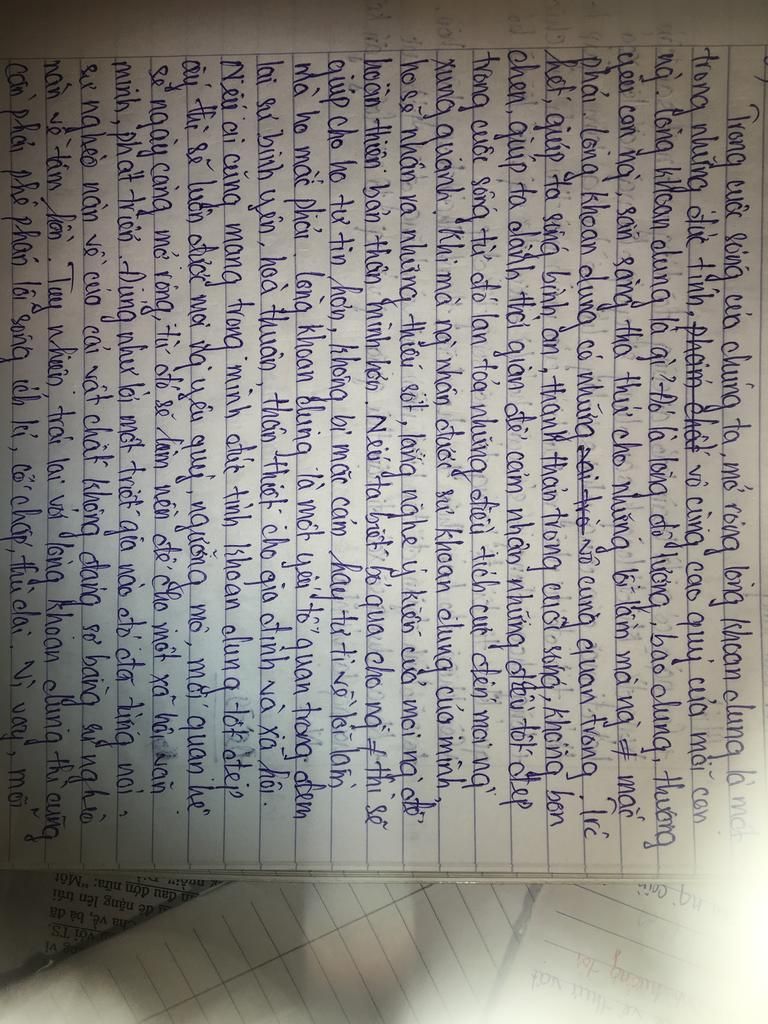 Trong cuộc sống của chúng ta, mở rộng lòng khoan dung là một
trong những đức tính, phẩm chất vô cùng cao quý của mỗi con
ng. Lòng khoan dung là gì? Đó là lòng độ lượng, bao dung, thương
yêu con ng, sẵn sàng tha thứ cho những lỗi lầm mà ng ≠ mắc
phải. Lòng khoan dung có những vai trò vô cùng quan trọng. Trước
hết, giúp ta sống bình an, thanh thản trong cuộc sống, không bon
chen, giúp ta dành thời gian để cảm nhận những điều tốt đẹp
trong cuộc sống từ đó lan toả những điều tích cực đến mọi ng
xung quanh. Khi mà ng nhận được sự khoan dung của mình,
họ sẽ nhận ra những thiếu sót, lắng nghe ý kiến của mọi ng để
hoàn thiện bản thân mình hơn. Nếu ta biết bỏ qua cho ng ≠ thì sẽ
giúp cho họ tự tin hơn, không bị mặc cảm hay tự ti về lỗi lầm
mà họ mắc phải. Lòng khoan dung là một yếu tố quan trọng đem
lại sự bình yên, hoà thuận, thân thiết cho gia đình và xã hội.
Nếu ai cũng mang trong mình đức tính khoan dung tốt đẹp
ấy thì sẽ luôn được mọi ng yêu quý, ngưỡng mộ, mối quan hệ
sẽ ngày càng mở rộng, từ đó sẽ làm nên để cho một xã hội văn
minh, phát triển. Đúng như lời một triết gia nào đó đã từng nói,
sự nghèo nàn về của cải vật chất không đáng sợ bằng sự nghèo
nàn về tâm hồn. Tuy nhiên, trái lại với lòng khoan dung thì cũng
cần phải phê phán lối sống ích kỉ, cố chấp, thù dai. Vì vậy, mỗi